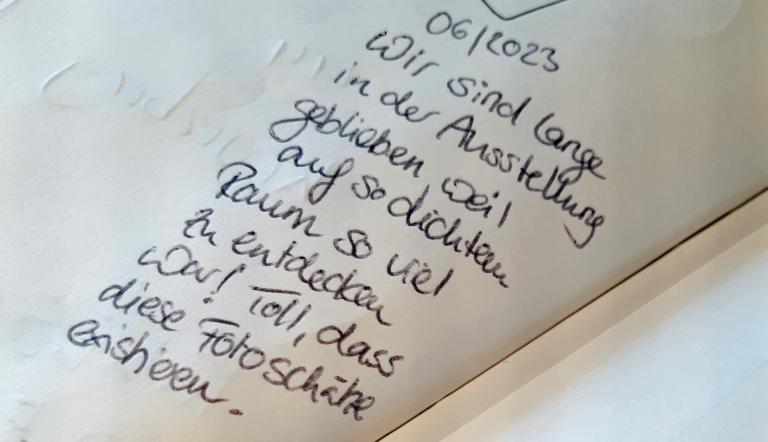 06/2023
Wir sind lange
in der Ausstellung
geblieben weil
auf so dichtem
Raum so viel
zu entdecken
war! Toll, dass
diese Fotoschätze
existieren.